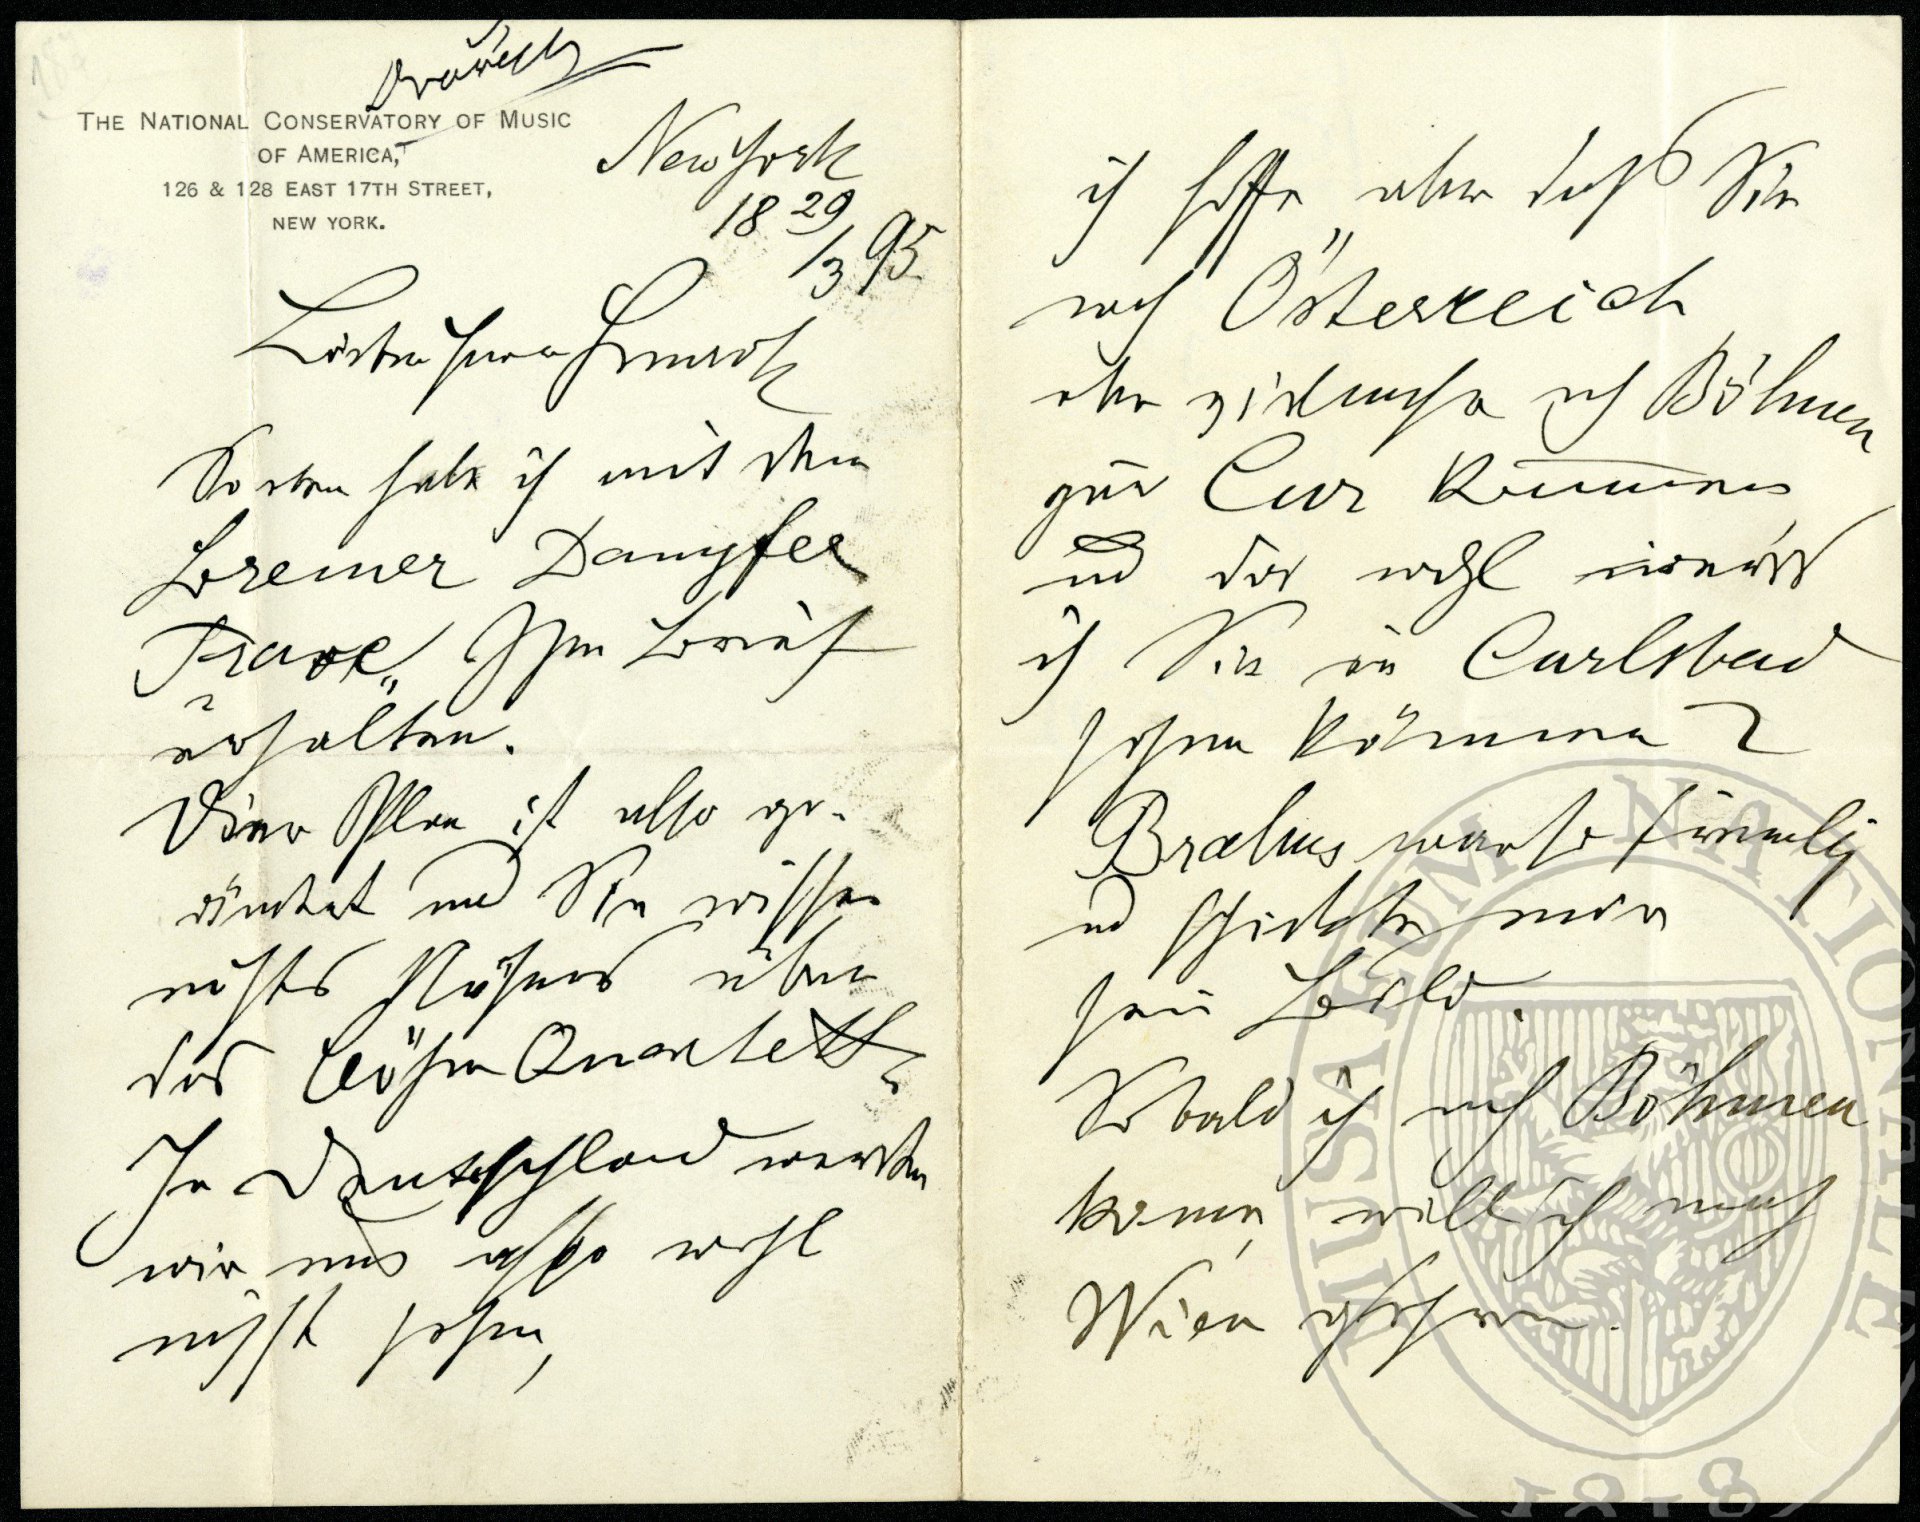 Dvořák
THE NATIONAL CONSERVATORY OF MUSIC
OF AMERICA,
126 & 128 EAST 17TH STREET,
NEW YORK.
New York
18 29/3 95
Lieber Herr Simrock
So eben habe ich mit dem
Bremer Dampfer
Trave" Ihren Brief
erhalten.
Ihr Plan ist also ge-
ändert und Sie wissen
nichts Näheres über
das böhm Quartett
In Deutschland werden
wir uns also wohl
nicht sehen,
ich hoffe aber daß Sie
nach Österreich
oder vielmehr nach Böhmen
zur Cur kommen
und das wohl
ich Sie in Carlsbad
sehen können?
Brahms war so freundlich
und schickte mir
sein Bild.
Sobald ich nach Böhmen
komme, will ich nach
Wien gehen.
MUSAEUM NATIONALE
1818